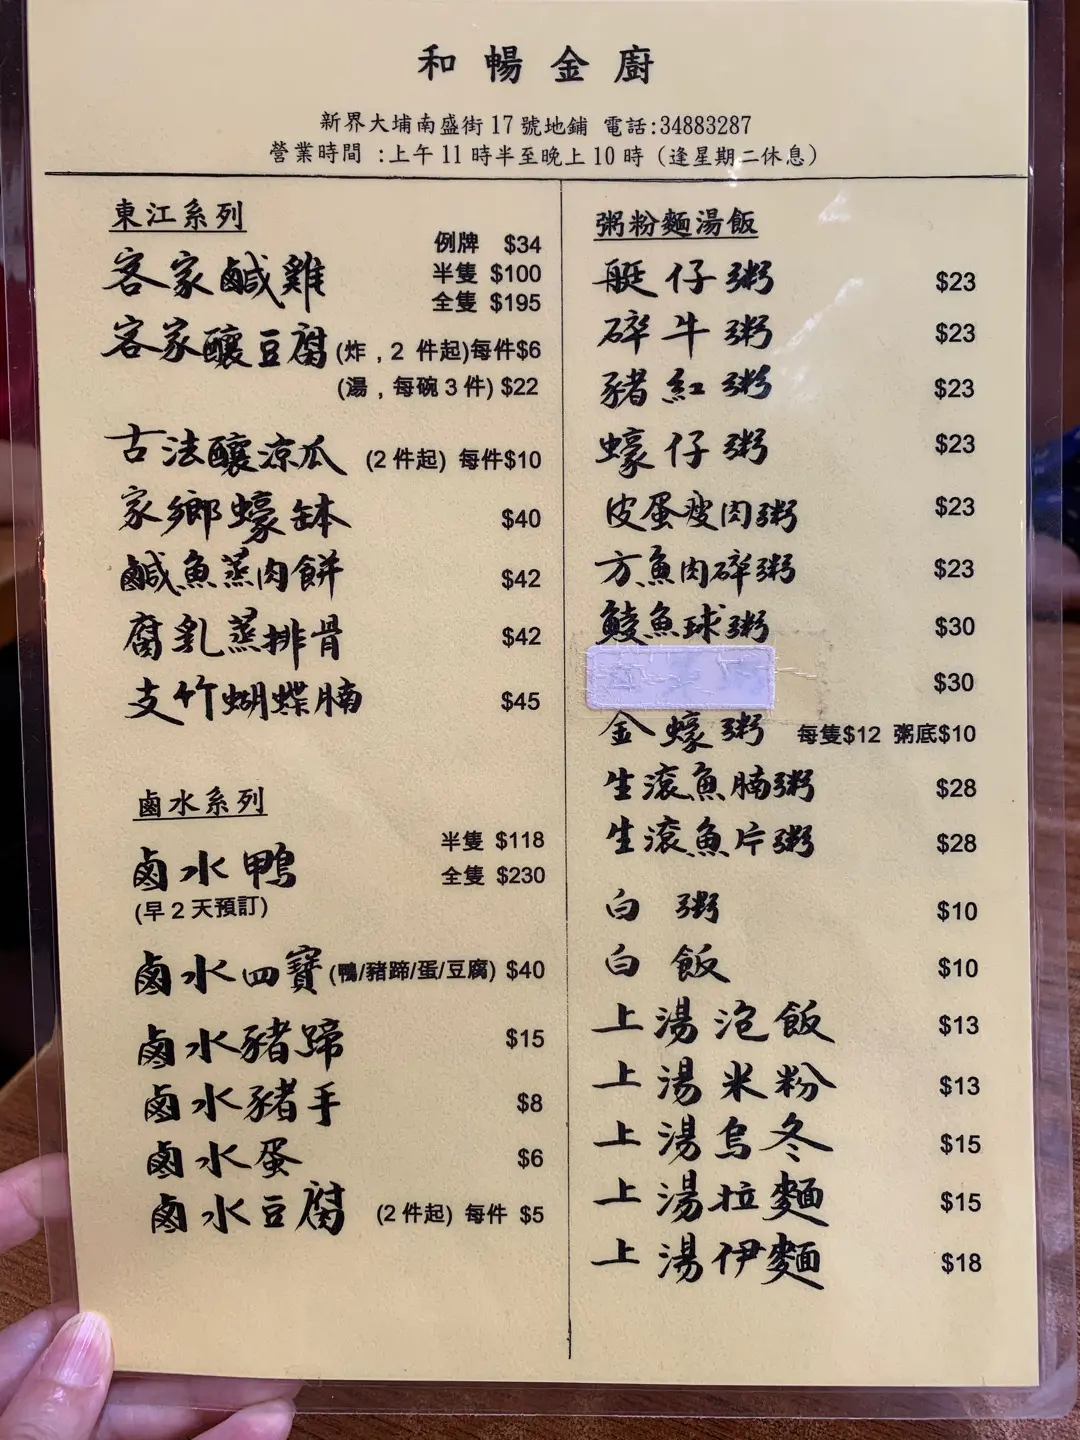 和暢金廚
新界大埔南盛街17號地鋪 電話:34883287
營業時間 :上午11時半至晚上10時 (逢星期二休息)
東江系列
客家鹹雞 例牌 $34
半隻 $100
全隻 $195
客家釀豆腐 (炸,2 件起)每件$6
(湯,每碗3件) $22
古法釀涼瓜 (2件起) 每件$10
家鄉蠔缽 $40
鹹魚蒸肉餅 $42
腐乳蒸排骨 $42
支竹蝴蝶腩 $45
鹵水系列
鹵水鴨 半隻 $118
全隻 $230
(早2天預訂)
鹵水四寶 (鴨/豬蹄/蛋/豆腐) $40
鹵水豬蹄 $15
鹵水豬手 $8
鹵水蛋 $6
鹵水豆腐 (2件起) 每件 $5
粥粉麵湯飯
艇仔粥 $23
碎牛粥 $23
豬紅粥 $23
蠔仔粥 $23
皮蛋瘦肉粥 $23
方魚肉碎粥 $23
鯪魚球粥 $30
$30
金蠔粥 每隻$12 粥底$10
生滾魚腩粥 $28
生滾魚片粥 $28
白粥 $10
白飯 $10
上湯泡飯 $13
上湯米粉 $13
上湯烏冬 $15
上湯拉麵 $15
上湯伊麵 $18